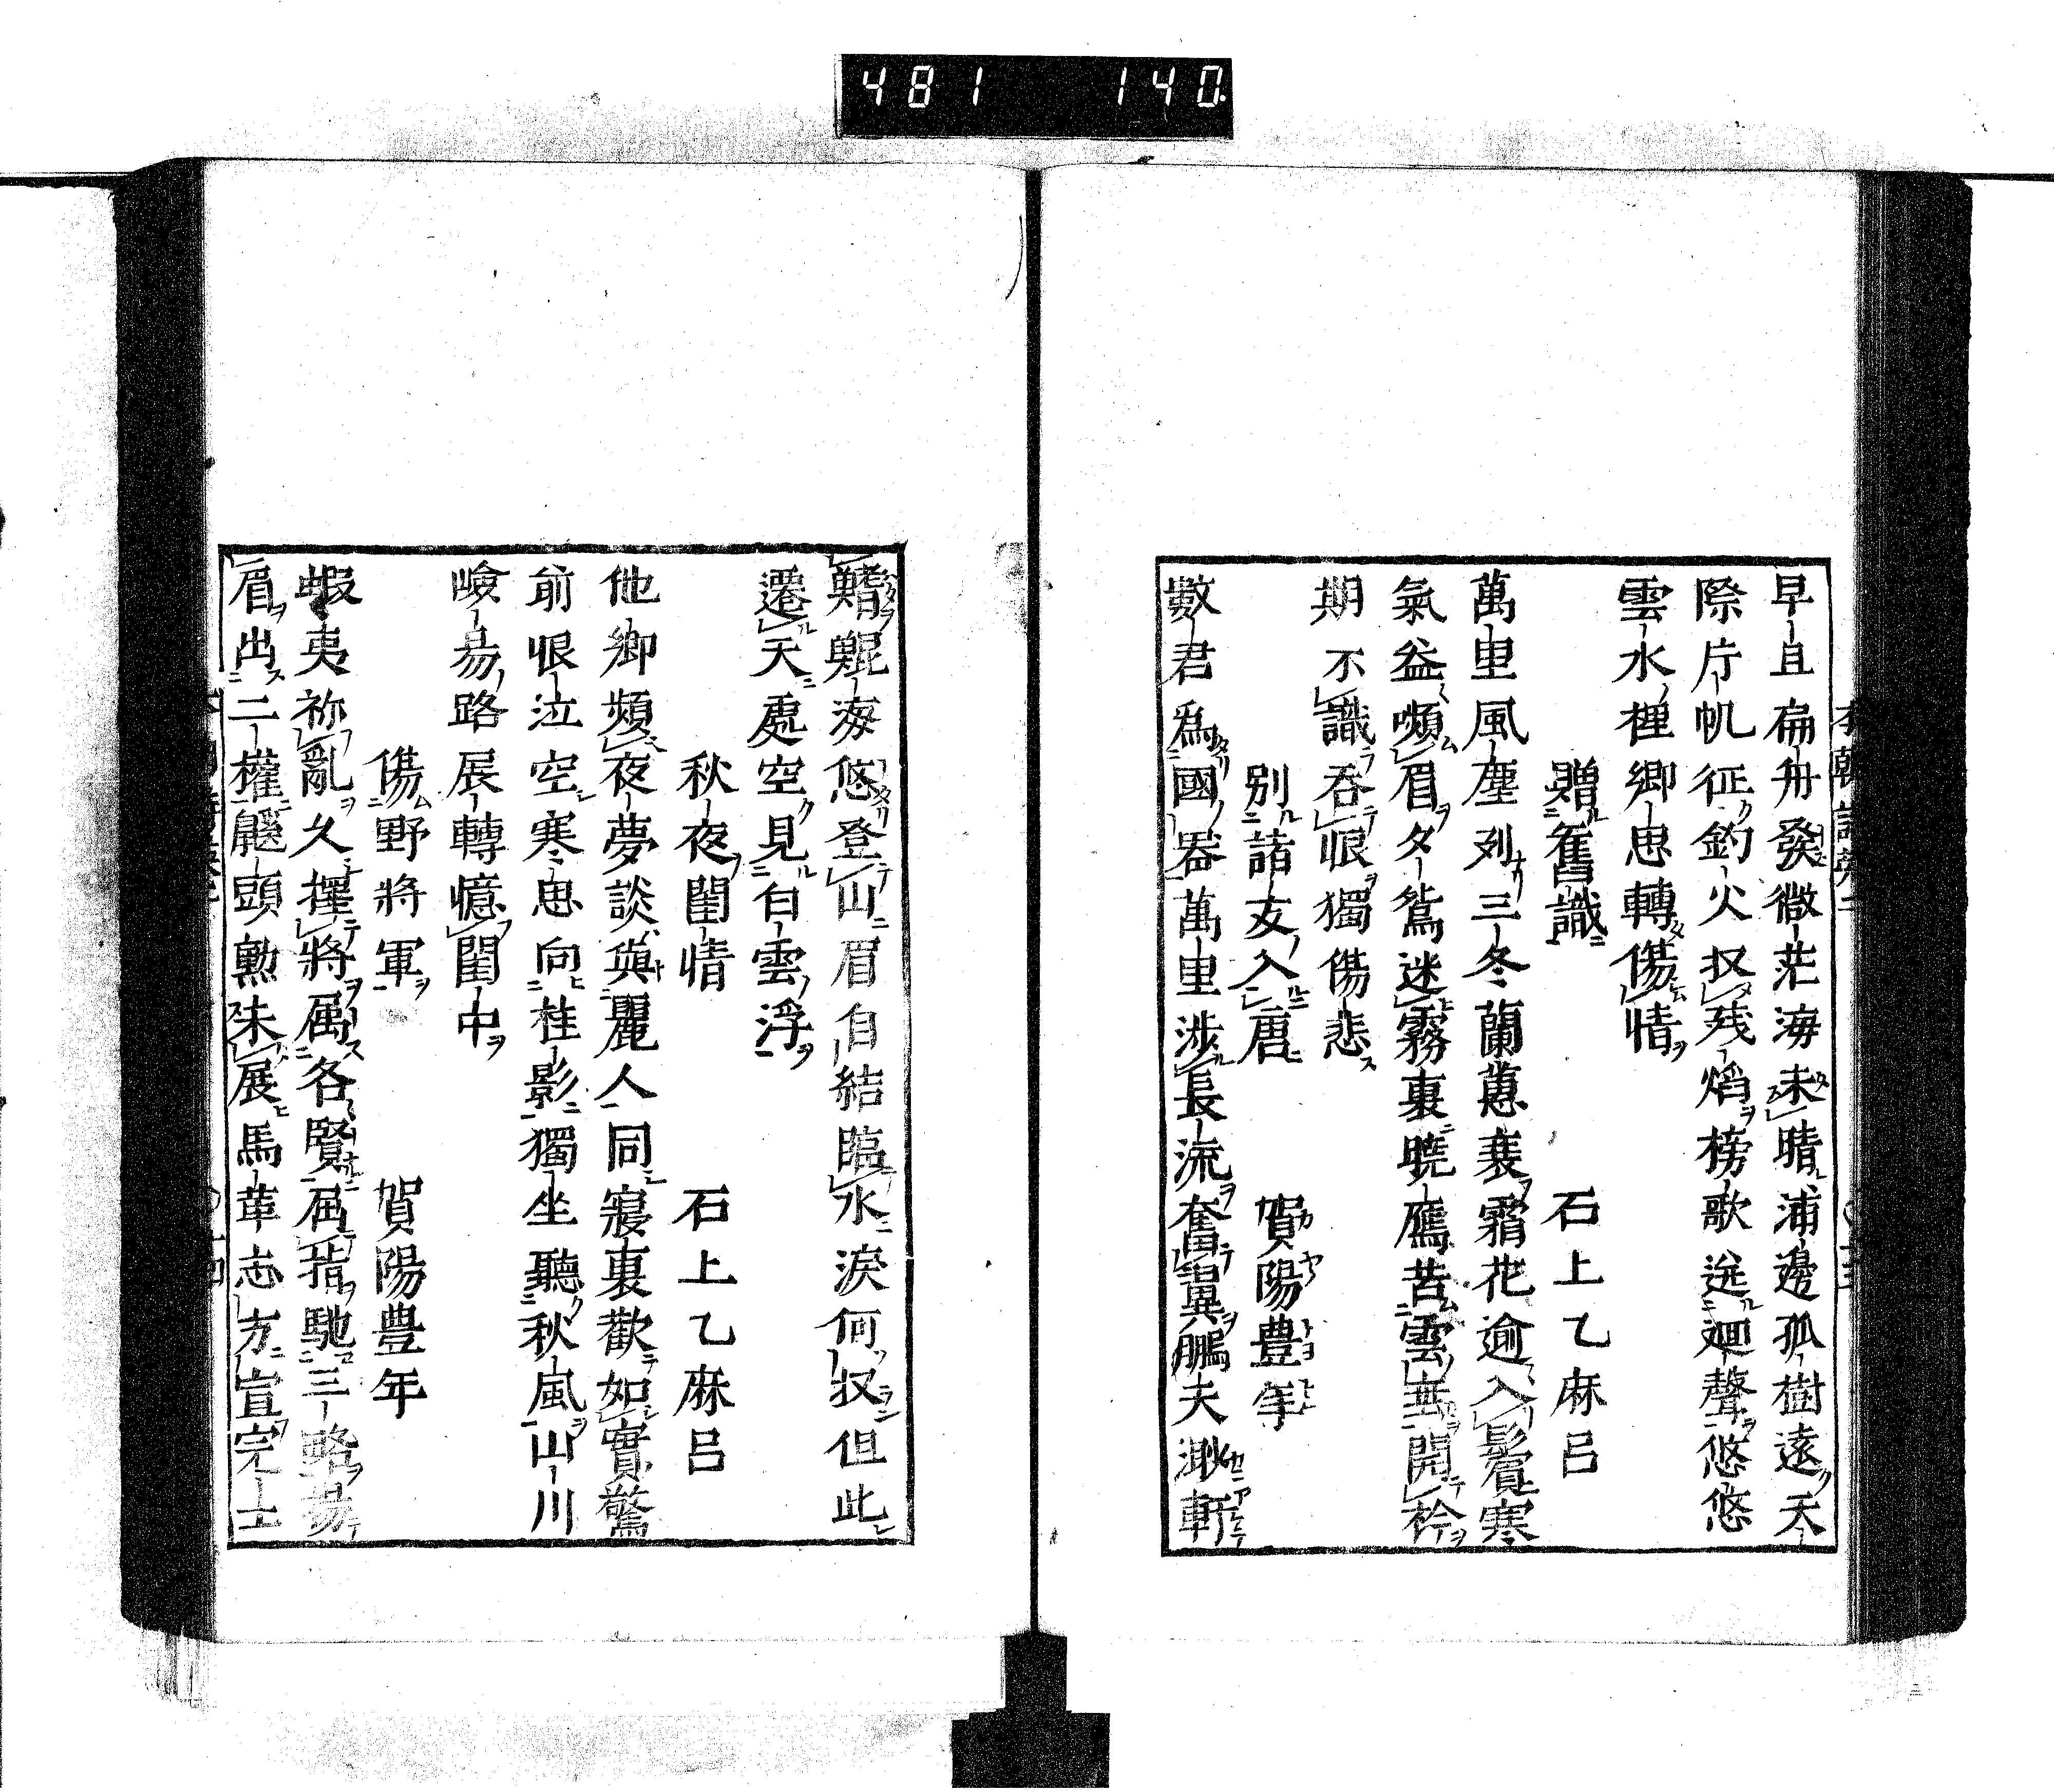 481 140
早且扁舟發微茫海未晴浦邊孤樹遠天
際片帆征釣火収殘焰榜歌送迴聲悠悠
雲水裡鄉思轉傷情
贈舊識 石上乙麻呂
萬里風塵別三冬蘭蕙衰霜花逾入鬢寒
氣益嚬眉夕鴛迷霧裏曉鴈苦雲垂開衿
期不識吞恨獨傷悲
別諸友入唐 賀陽豊年
數君爲國器萬里涉長流奮翼鵬天渺軒
鰭鯤海悠登山眉自結臨水淚何収但此
遷天處空見白雲浮
秋夜閨情 石上乙麻呂
他鄉頻夜夢談與麗人同寢裏歡如實驚
前恨泣空寒思向桂影獨坐聽秋風山川
嶮易路展轉憶閨中
傷野將軍 賀陽豊年
蝦夷祢亂久擇將属各賢屈指馳三略揚
眉出二權鼴頭勲未展馬革志方宣完士